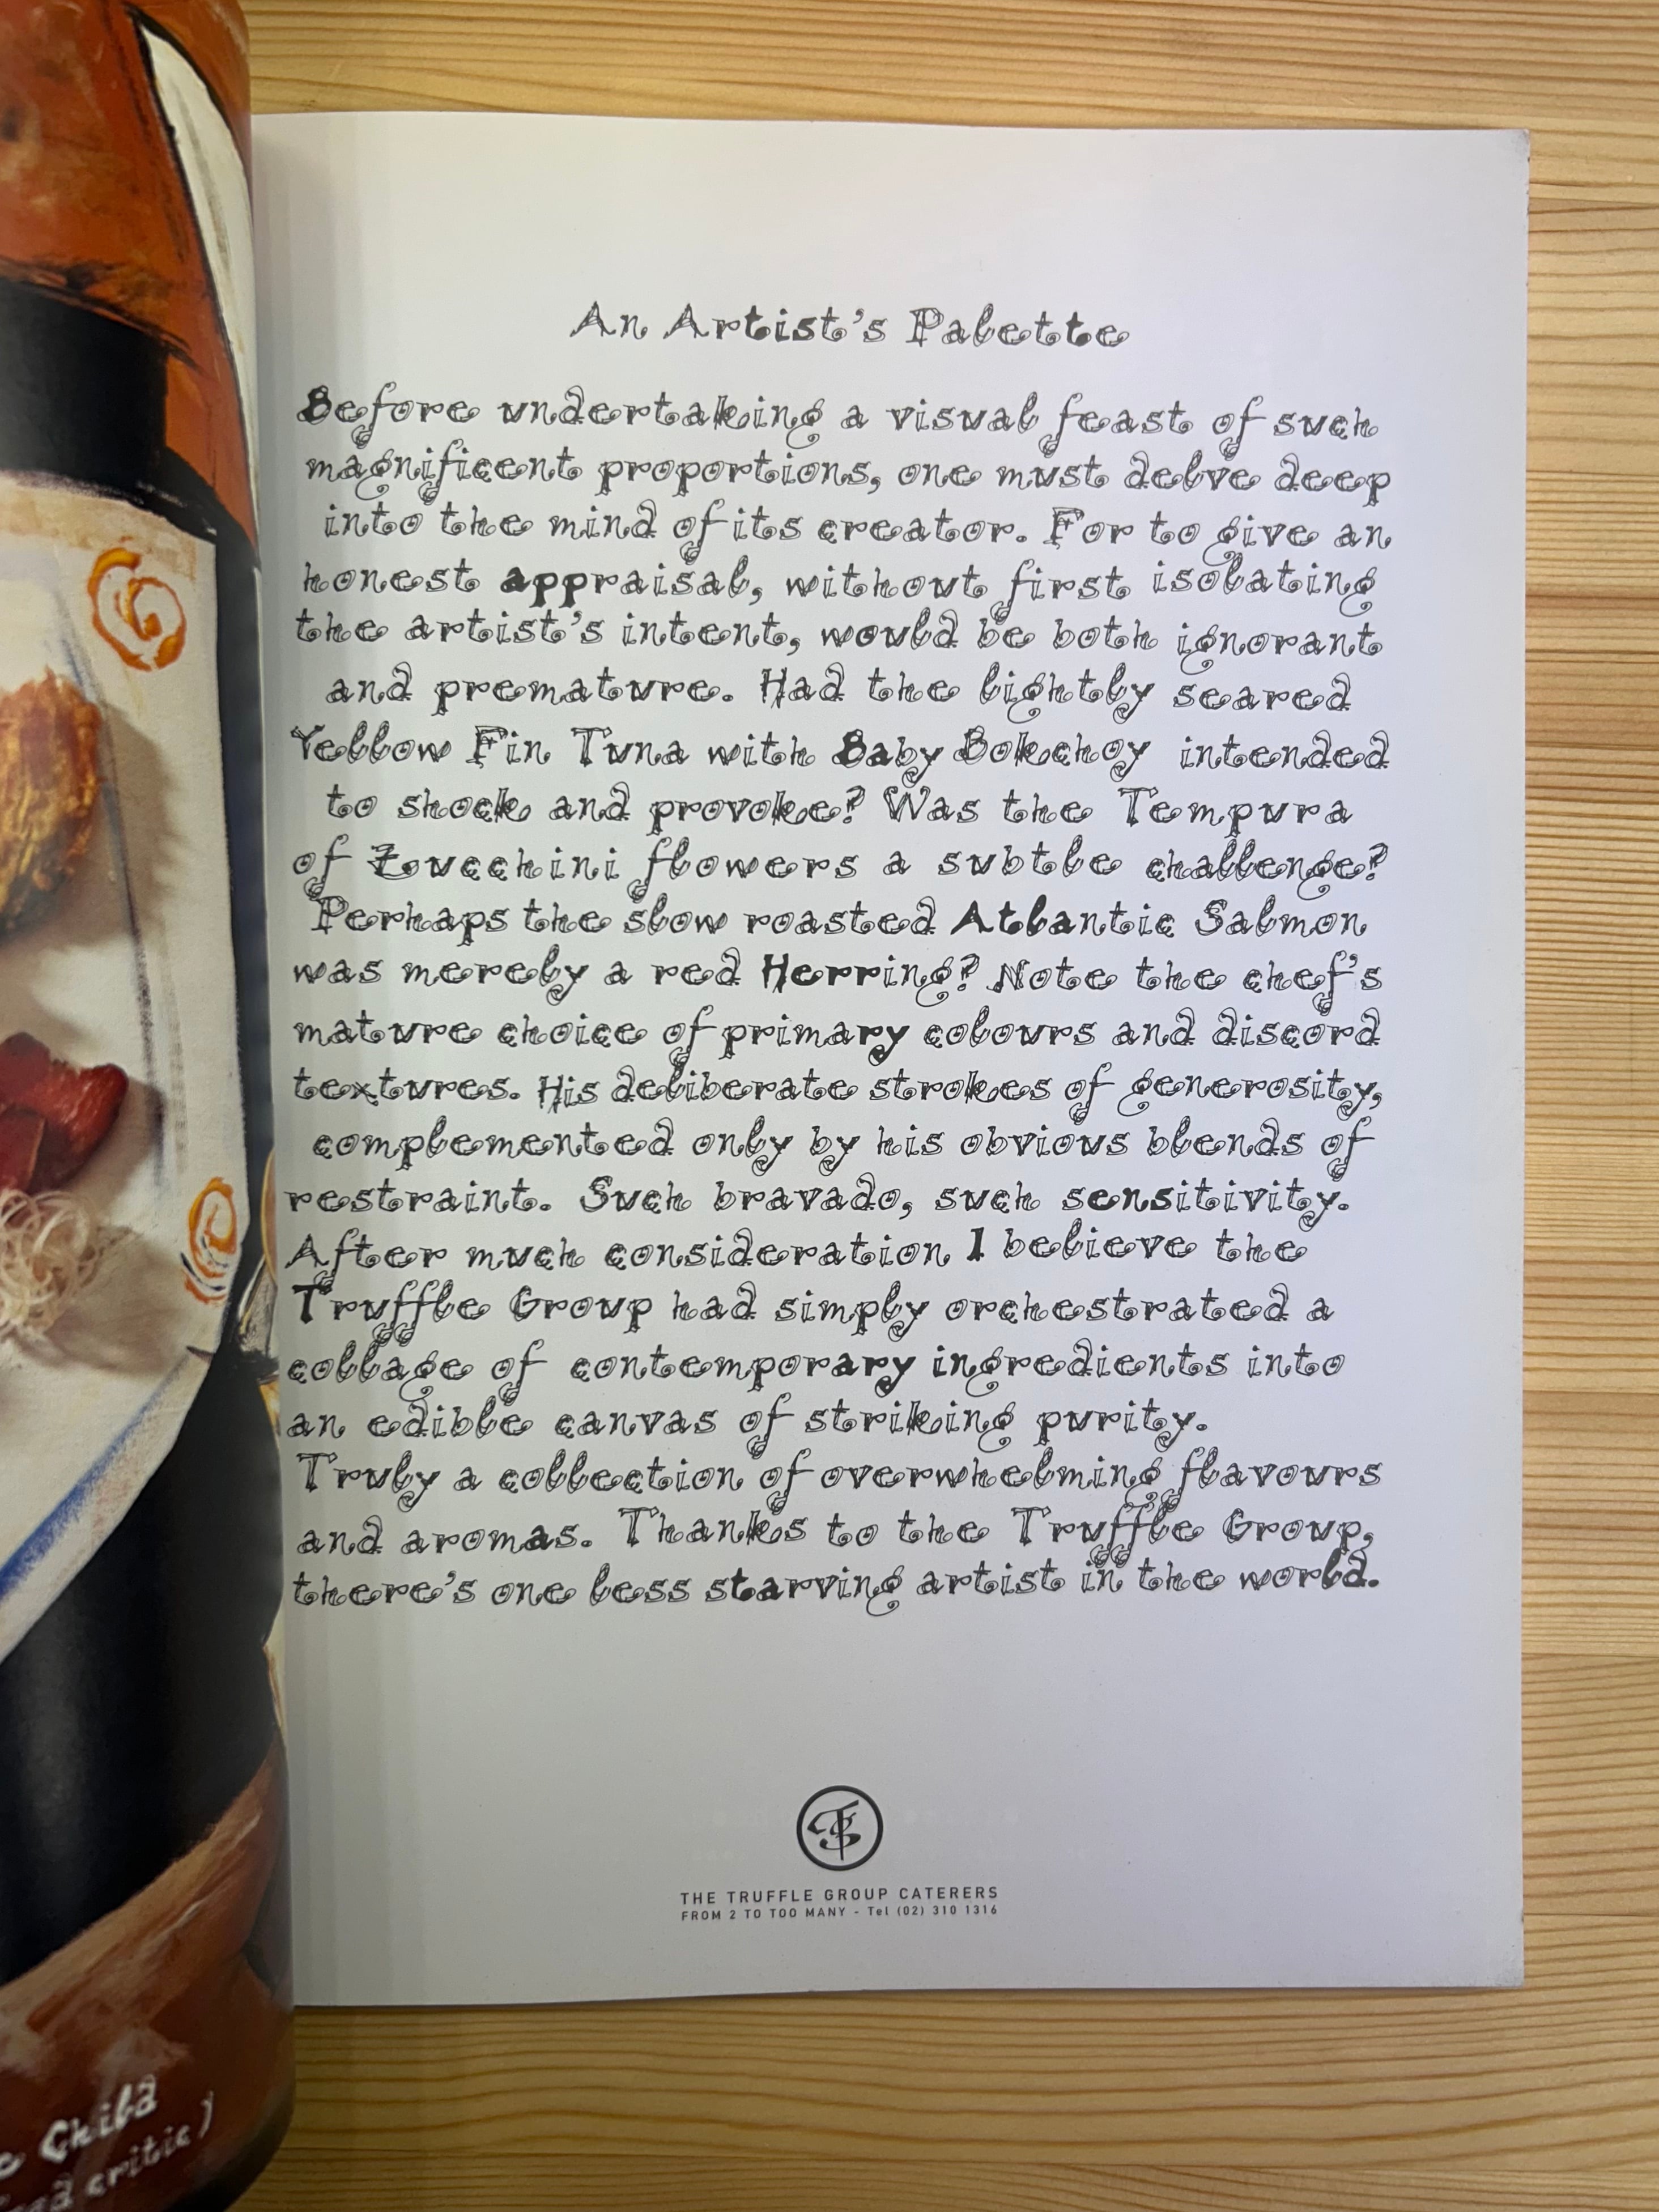 An Artist's Palette
Before undertaking a visual feast of such
magnificent proportions, one must delve deep
into the mind of its creator. For to give an
honest appraisal, without first isolating
the artist's intent, would be both ignorant
and premature. Had the lightly seared
Yellow Fin Tuna with Baby Bokchoy intended
to shock and provoke? Was the Tempura
of Zoucchini flowers a subtle challenge?
Perhaps the slow roasted Atlantic Salmon
was merely a red Herring? Note the chef's
mature choice of primary colours and discord
textures. His deliberate strokes of generosity,
complemented only by his obvious blends of
restraint. Such bravado, such sensitivity.
After much consideration I believe the
Truffle Group had simply orchestrated a
collage of contemporary ingredients into
an edible canvas of striking purity.
Truly a collection of overwhelming flavours
and aromas. Thanks to the Truffle Group,
there's one less starving artist in the world.
THE TRUFFLE GROUP CATERERS
FROM 2 TO TOO MANY - Tel (02) 310 1316
Chila
critic)